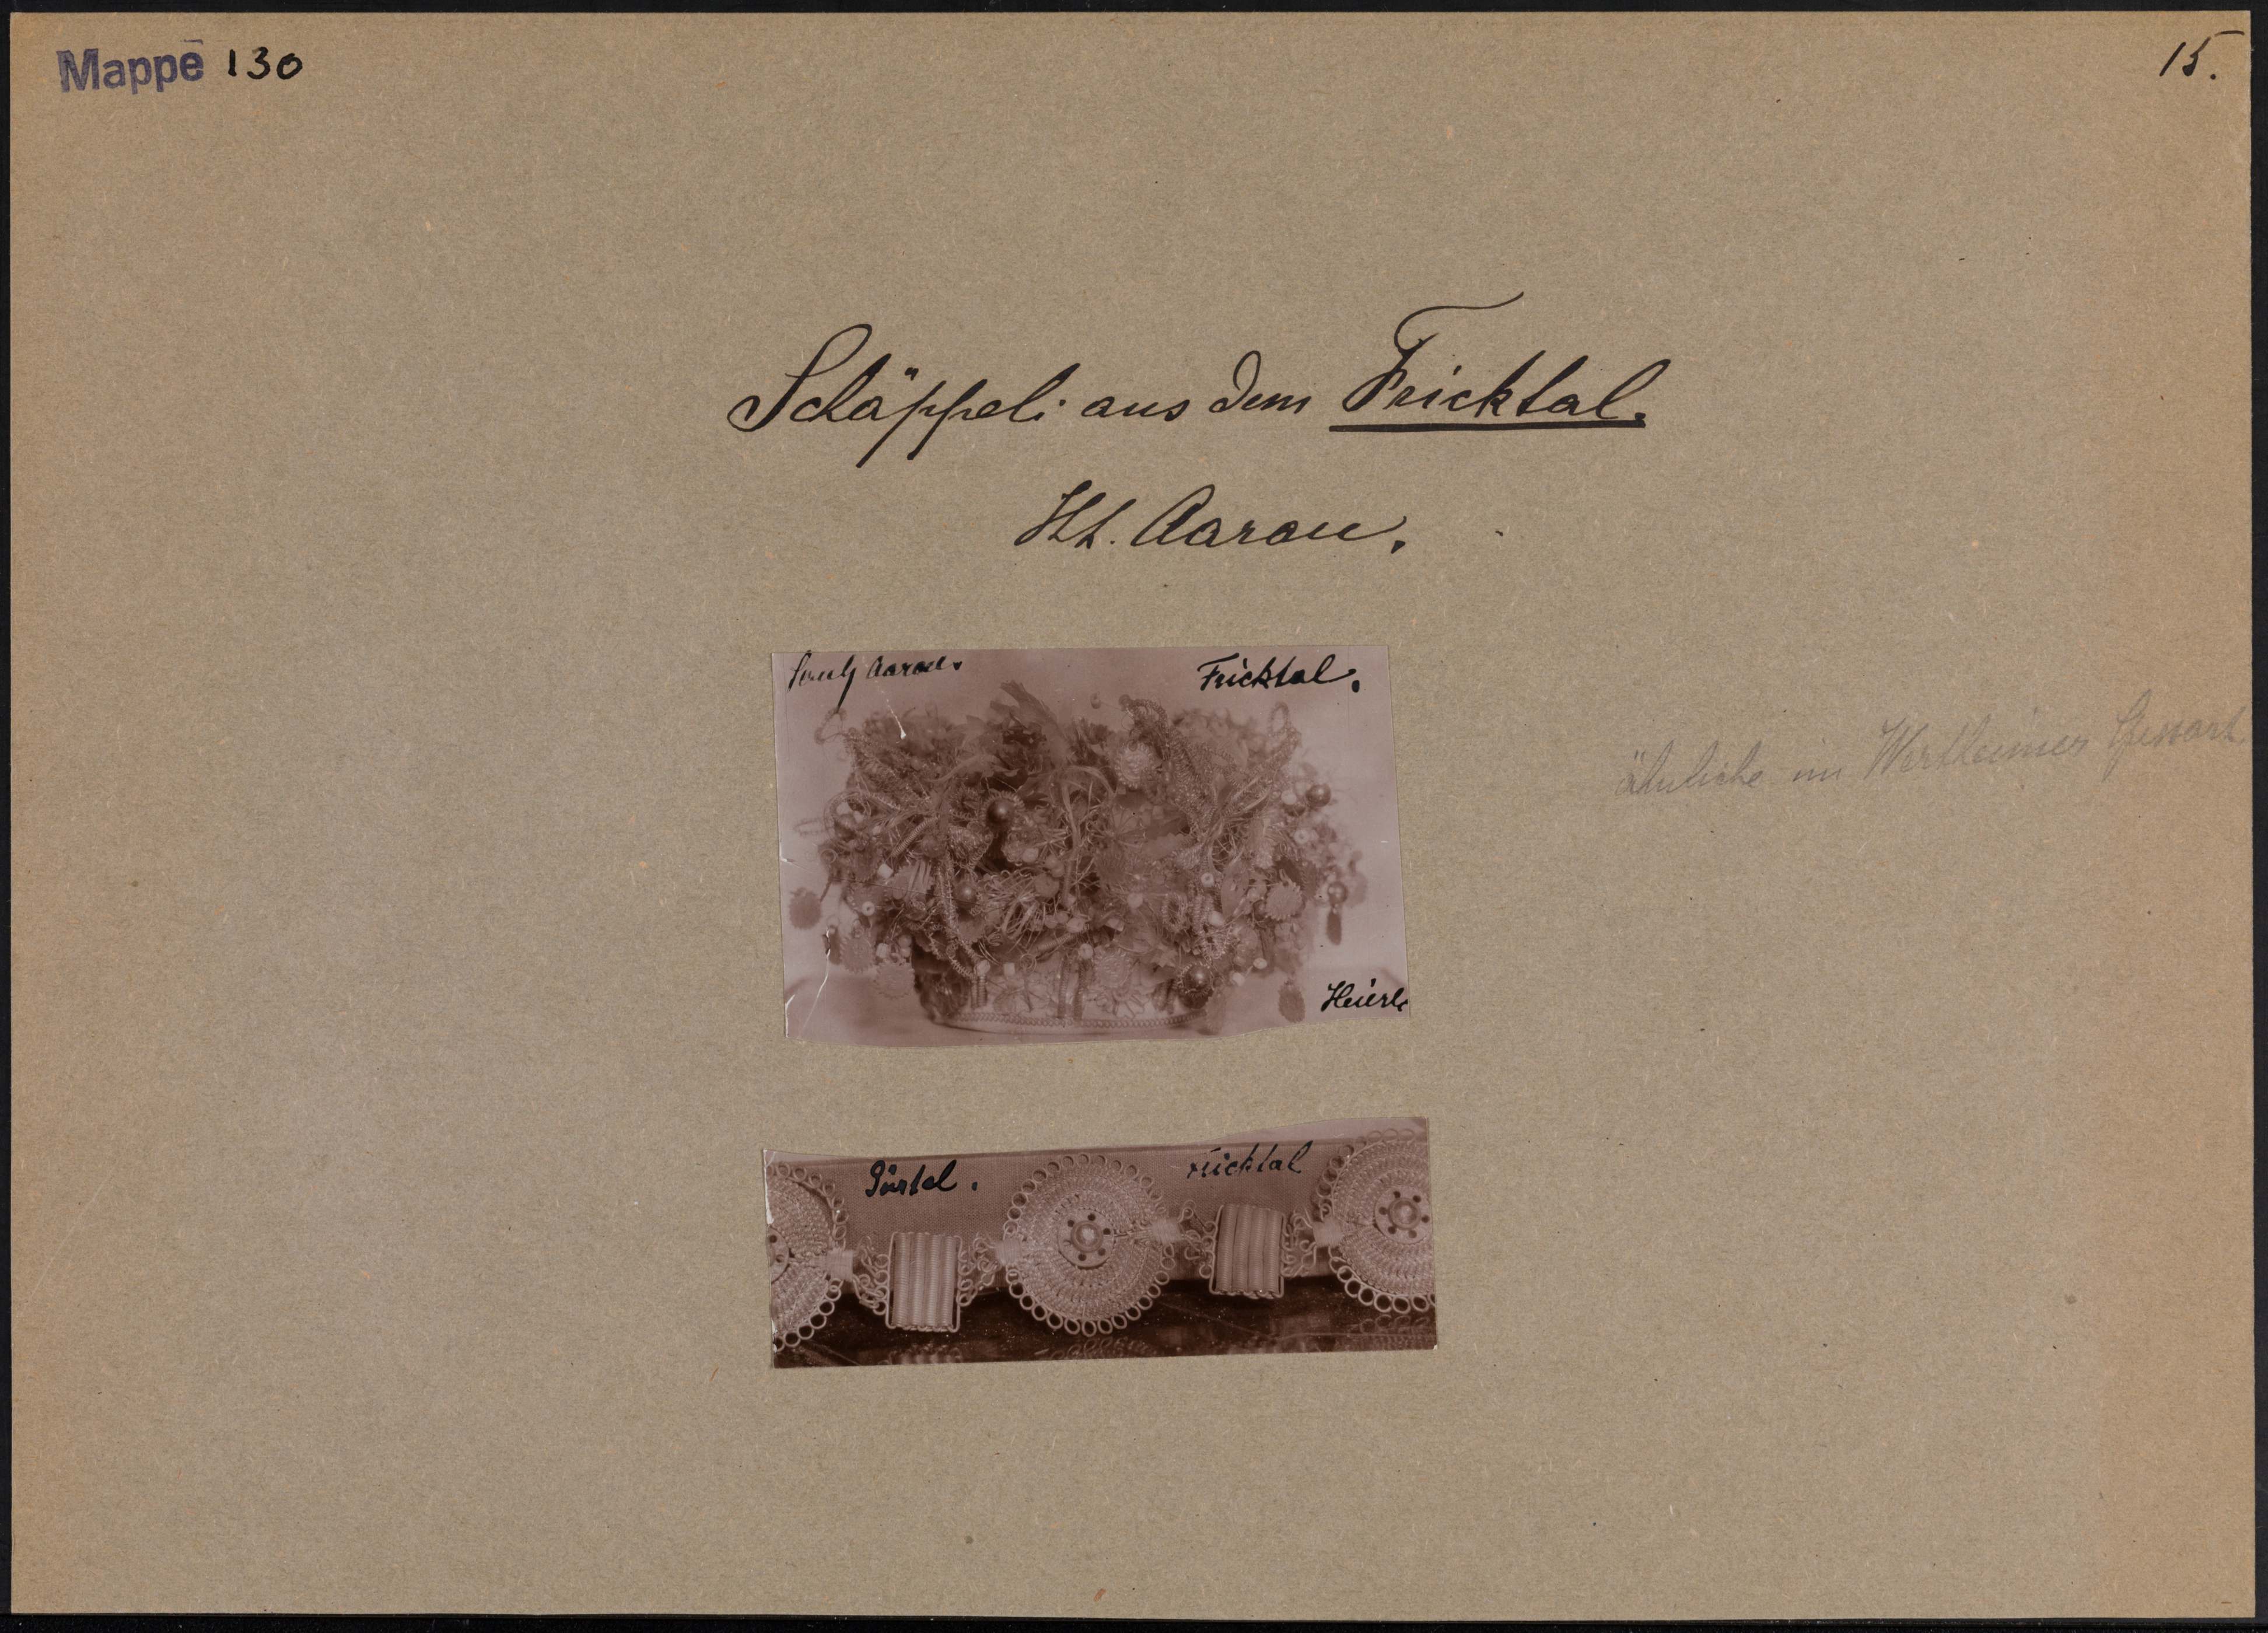 Mappe 130
15.
Schäppeli aus dem Fricktal.
Kt. Aarau.
Aarau.
Fricktal.
Heierli
ähnliche im Wertheimer Spessart
Gürtel.
Fricktal